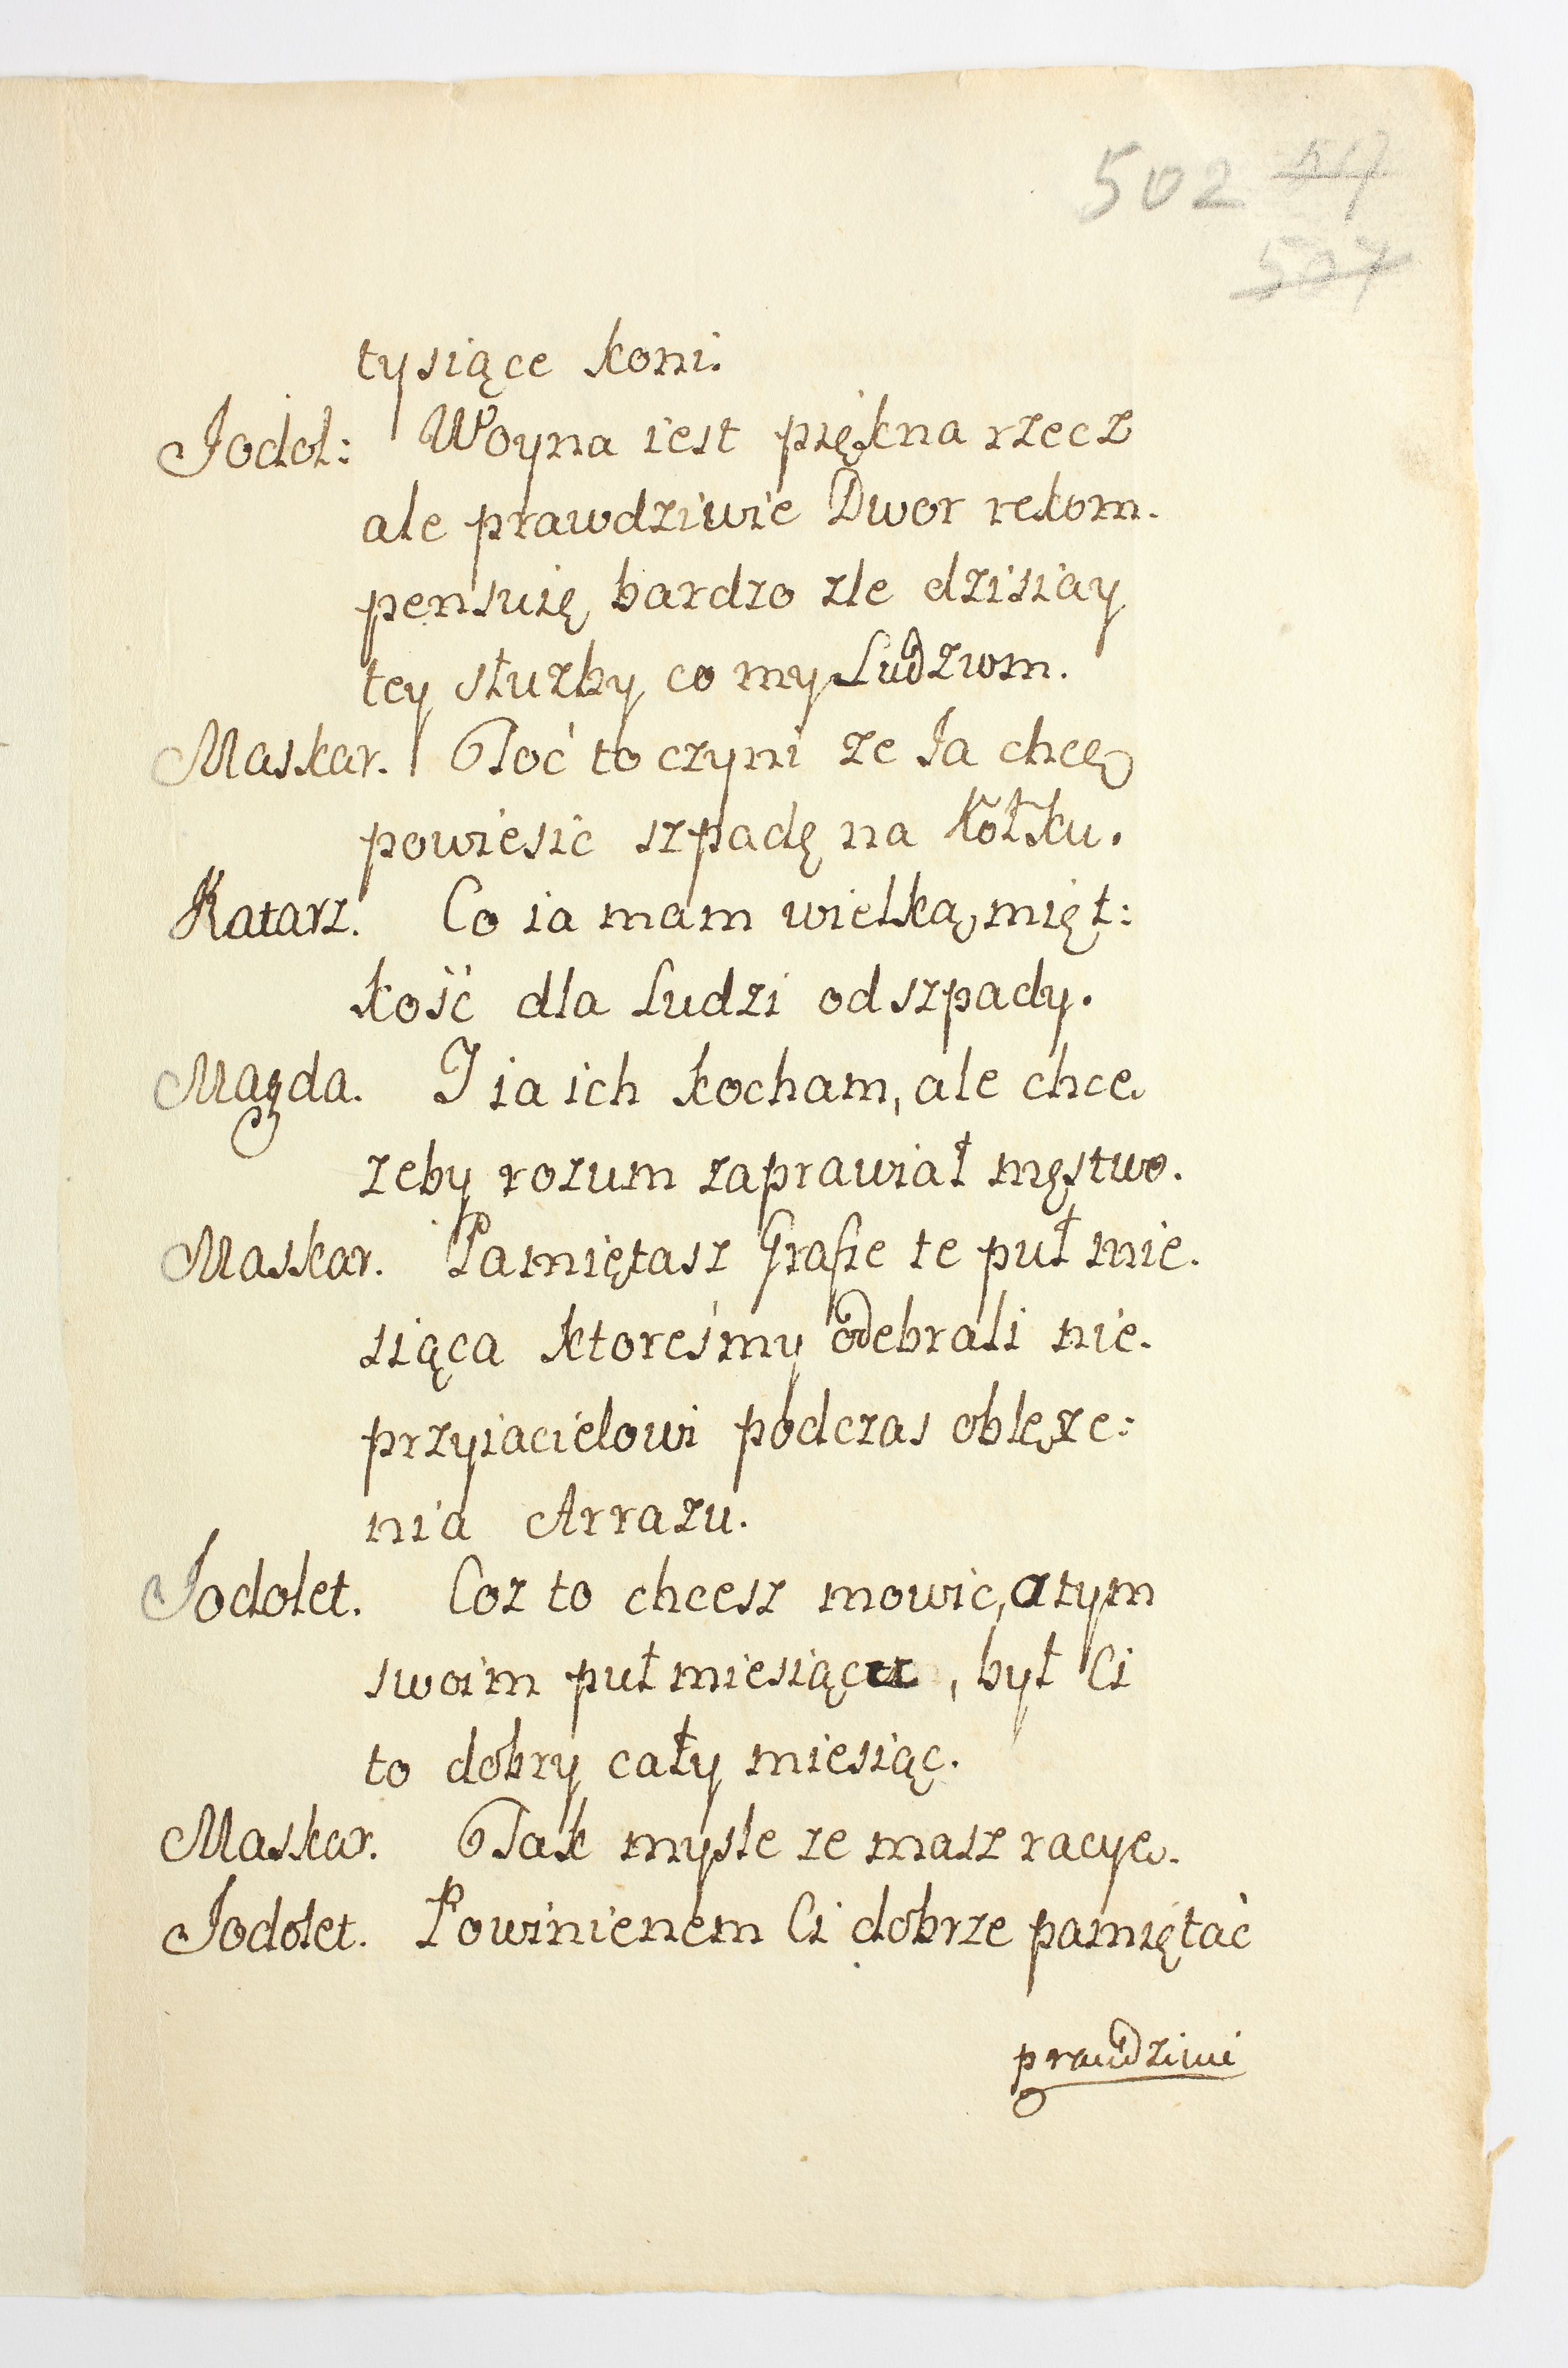 502 517
507
tysiące koni.
Jodol: Woyna iest piękna rzecz
ale prawdziwie Dwor rekom.
pensuię bardzo zle dzisiay
tey służby co my Ludziom.
Maskar. Toć to czyni ze Ja chcę
powiesic szpadę na kołku.
Katarz. Co ia mam wielką mięt:
kość dla Ludzi od szpady.
Magda. I ia ich kocham, ale chcę
zeby rozum zaprawiał męstwo.
Maskar. Pamiętasz Grafie te puł mie.
siąca ktoreśmy odebrali nie.
przyiacielowi podczas oblęże:
nia Arrazu.
Jodolet. Coz to chcesz mowic, a tym
swoim puł miesiącu, był Ci
to dobry cały miesiąc.
Maskar. Tak mysle ze masz racyę.
Jodolet. Powinienem Ci dobrze pamiętać
prawdziwi